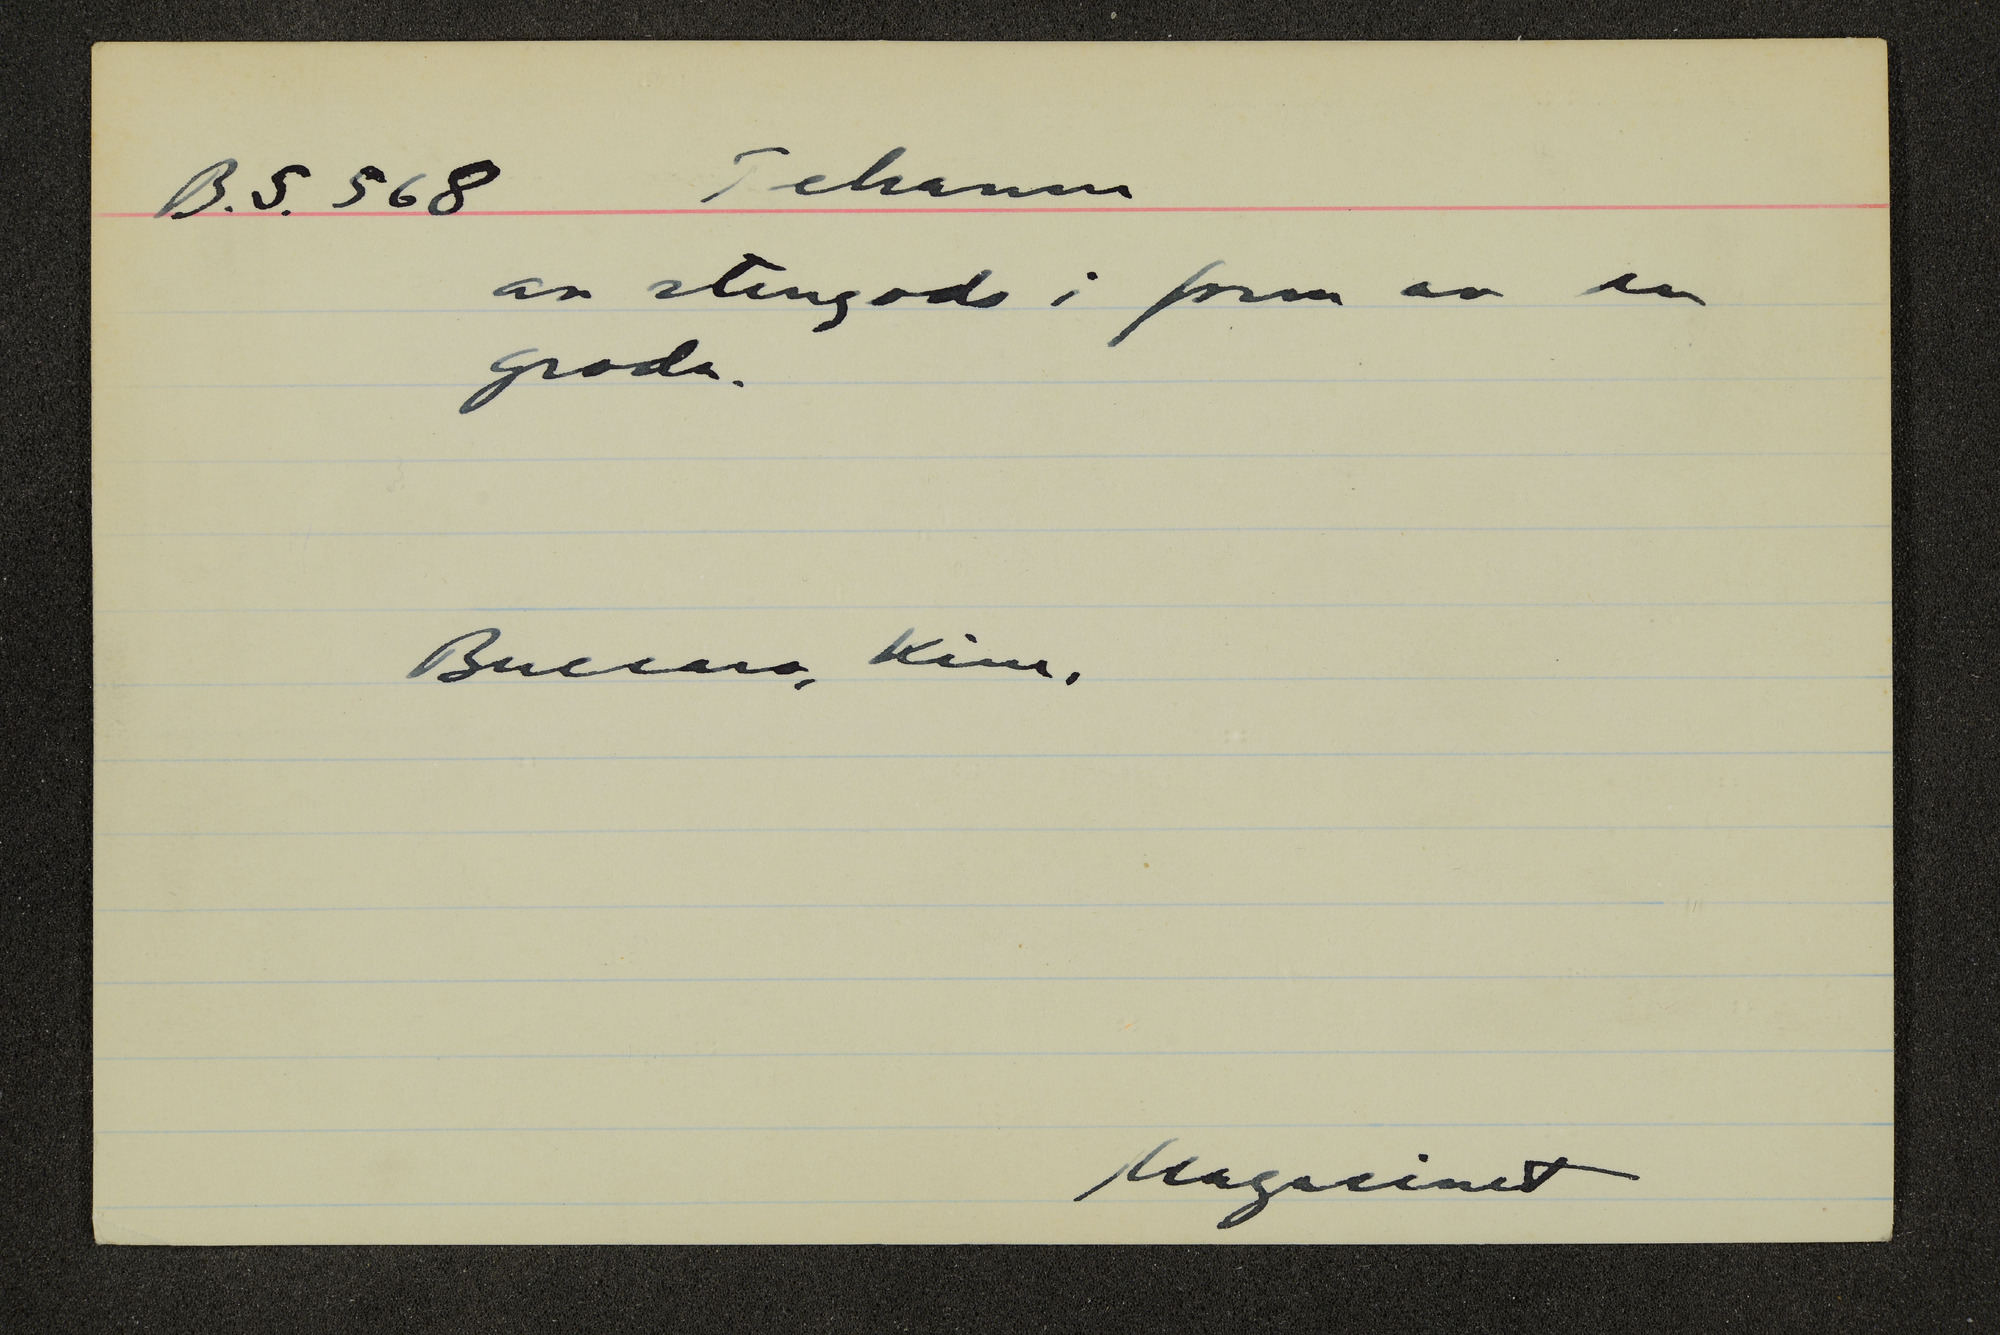 B.S. 568 Tekanna
av stengods i form av en
groda.
Buccaro, Kina.
Magasinet